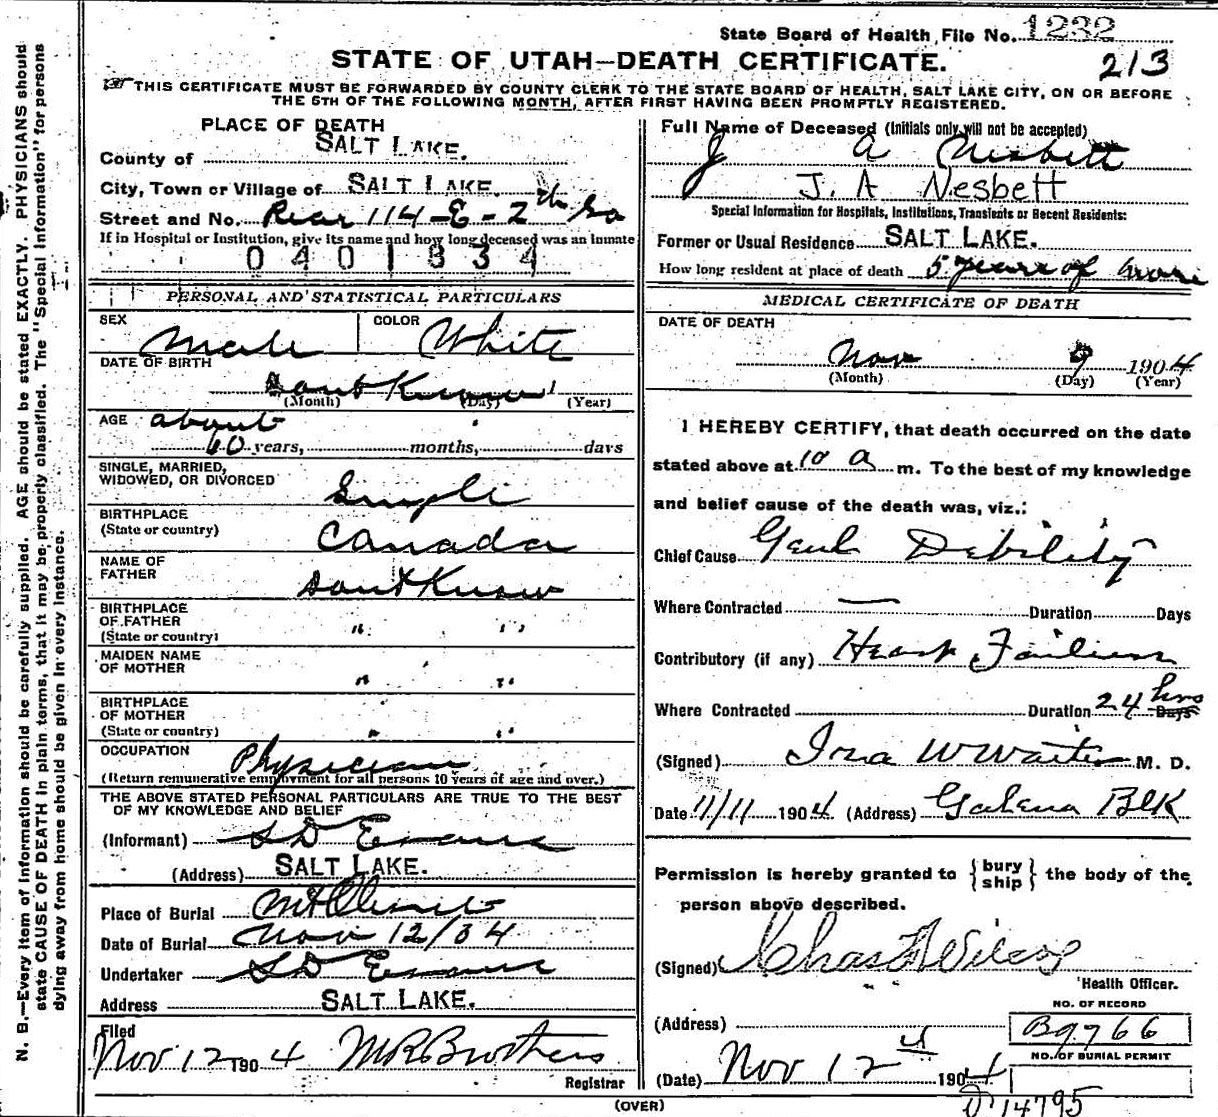 State Board of Health File No. 1232
STATE OF UTAH—DEATH CERTIFICATE. 213
THIS CERTIFICATE MUST BE FORWARDED BY COUNTY CLERK TO THE STATE BOARD OF HEALTH, SALT LAKE CITY, ON OR BEFORE
THE 5TH OF THE FOLLOWING MONTH, AFTER FIRST HAVING BEEN PROMPTLY REGISTERED.
N. B.—Every item of information should be carefully supplied. AGE should be stated EXACTLY. PHYSICIANS should
state CAUSE OF DEATH in plain terms, that it may be properly classified. The "Special Information" for persons
dying away from home should be given in every instance.
PLACE OF DEATH
County of SALT LAKE.
City, Town or Village of SALT LAKE.
Street and No. Rear 114-E-2th So
If in Hospital or Institution, give its name and how long deceased was an inmate
0401334
PERSONAL AND STATISTICAL PARTICULARS
SEX Male COLOR White
DATE OF BIRTH
dont Know 1
(Month) (Day) (Year)
AGE about
60 years, months, days
SINGLE, MARRIED,
WIDOWED, OR DIVORCED Single
BIRTHPLACE
(State or country) Canada
NAME OF
FATHER dont Know
BIRTHPLACE
OF FATHER
(State or country) " "
MAIDEN NAME
OF MOTHER " "
BIRTHPLACE
OF MOTHER
(State or country) " "
OCCUPATION Physician
(Return remunerative employment for all persons 10 years of age and over.)
THE ABOVE STATED PERSONAL PARTICULARS ARE TRUE TO THE BEST
OF MY KNOWLEDGE AND BELIEF
(Informant) S D Evans
(Address) SALT LAKE.
Place of Burial Mt Olivet
Date of Burial Nov 12/04
Undertaker S D Evans
Address SALT LAKE.
Filed
Nov 12 1904 M R Brothers
Registrar
Full Name of Deceased (Initials only will not be accepted)
J A Nesbett
J. A Nesbett
Special Information for Hospitals, Institutions, Transients or Recent Residents:
Former or Usual Residence SALT LAKE.
How long resident at place of death 5 years or more
MEDICAL CERTIFICATE OF DEATH
DATE OF DEATH
Nov 9 1904
(Month) (Day) (Year)
I HEREBY CERTIFY, that death occurred on the date
stated above at 10 a m. To the best of my knowledge
and belief cause of the death was, viz.:
Chief Cause Genl Debility
Where Contracted — Duration Days
Contributory (if any) Heart Failure
Where Contracted Duration 24 hrs Days
(Signed) Ira W Waite M. D.
Date 11/11 1904 (Address) Galena Blk
Permission is hereby granted to {bury
ship} the body of the
person above described.
(Signed) Chas F Wilcox
Health Officer.
NO. OF RECORD
(Address) B9766
NO. OF BURIAL PERMIT
(Date) Nov 12 4 1904
D 14795
(OVER)